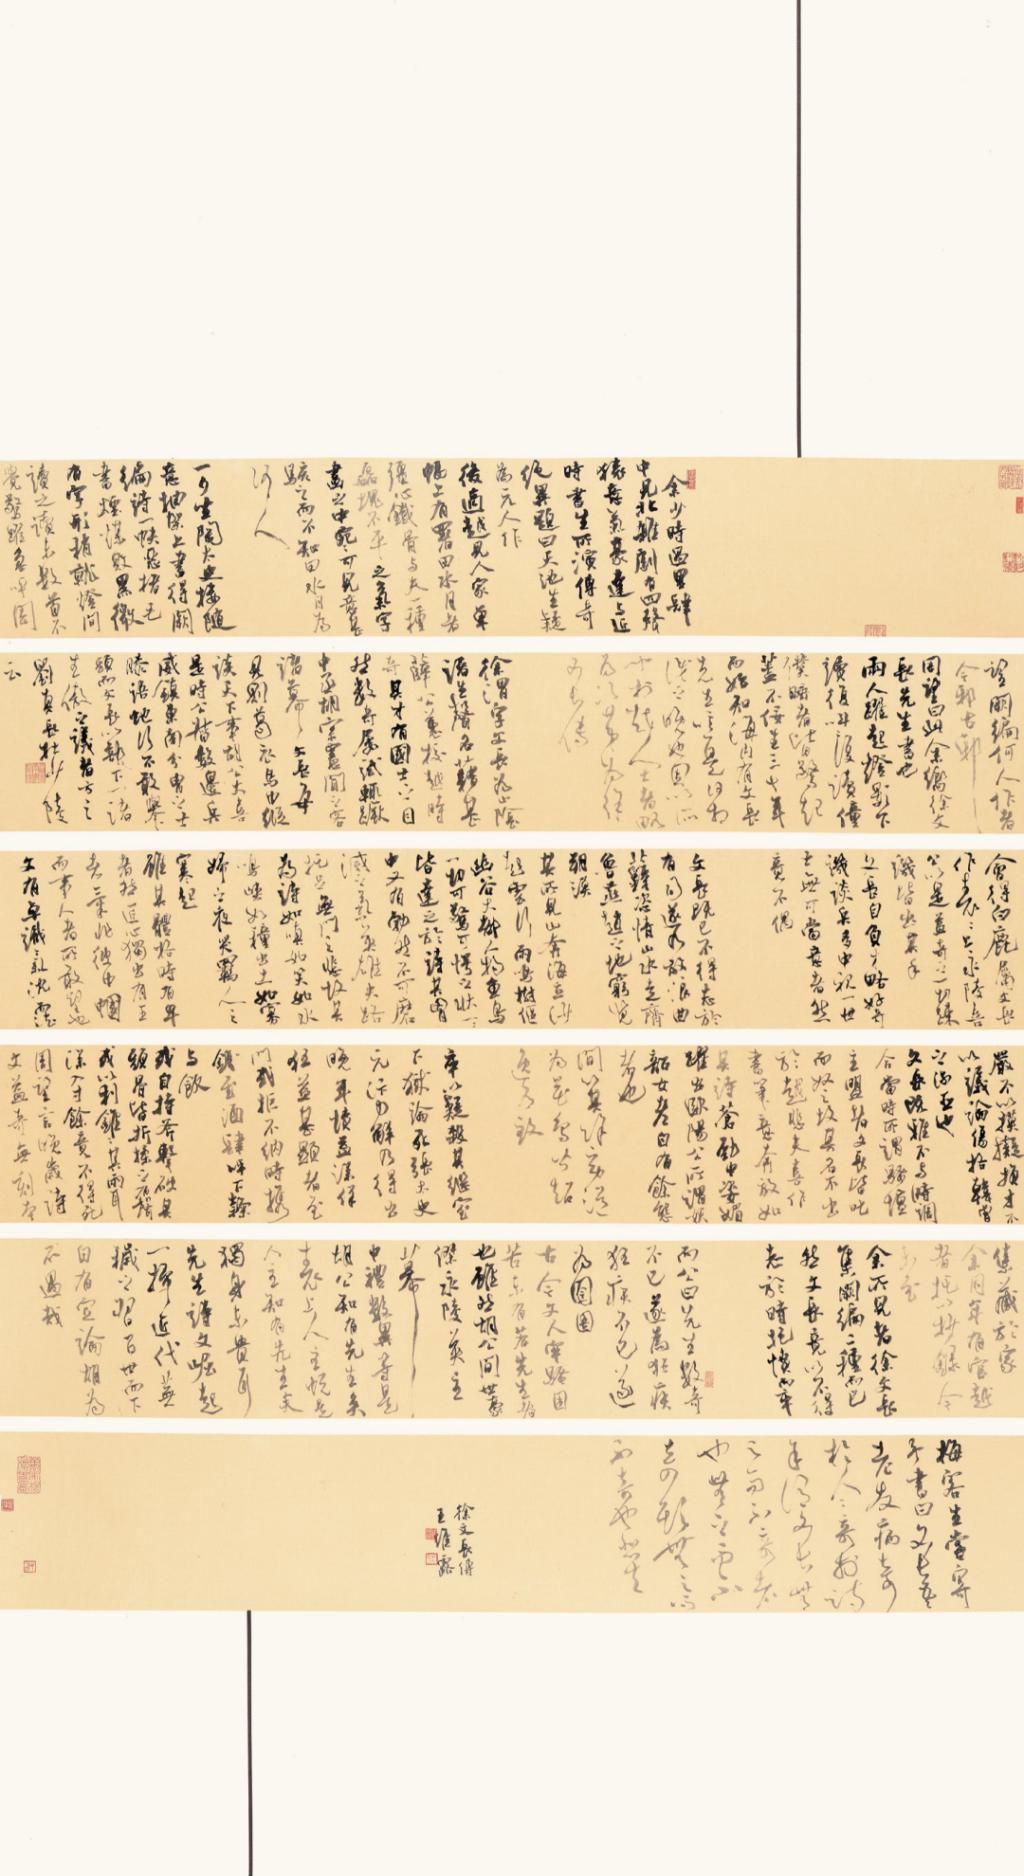 余少時過里肆
中見北雜劇有四聲
猿意氣豪達與近
時書生所演傳奇
絕異題曰天池生疑
為元人作
後適越見人家單
幅上有署田水月者
彊心鐵骨與夫一種
磊塊不平之氣字
畫之中宛宛可見意甚
駭之而不知田水月為
何人
一夕坐陶太史樓隨
意抽架上書得闕
編詩一帙惡楮毛
書煙煤敗黑微
有字形稍就燈間
讀之讀未數首不
覺驚躍急呼周
望闕編何人作者
今耶古耶
周望曰此余鄉徐文
長先生書也
兩人躍起燈影下
讀復叫叫復讀僮
僕睡者皆驚起
蓋不佞生三十年
而始知海內有文長
先生噫是何相
識之晚也因以所
聞於越人士者略
為次第為徐
文長傳
徐渭字文長為山陰
諸生聲名藉甚
薛公蕙校越時
奇其才有國士之目
然數奇屢試輒蹶
中丞胡公宗憲聞之客
諸幕文長每
見則葛衣烏巾縱
談天下事胡公大喜
是時公督數邊兵
威鎮東南介胄之士
膝語蛇行不敢舉
頭而文長以部下一諸
生傲之議者方之
劉真長杜少陵
云
會得白鹿屬文長
作表表上永陵喜
公以是益奇之一切疏
議皆出其手
文長自負才略好奇
計談兵多中視一世
士無可當意者然
竟不偶
文長既已不得志於
有司遂乃放浪曲
糵恣情山水走齊
魯燕趙之地窮覽
朔漠
其所見山奔海立沙
起雲行雨鳴樹偃
幽谷大都人物魚鳥
一切可驚可愕之狀一一
皆達之於詩其胸
中又有勃然不可磨
滅之氣英雄失路
托足無門之悲故其
為詩如嗔如笑如水
鳴峽如種出土如寡
婦之夜哭羈人之
寒起
雖其體格時有卑
者然匠心獨出有王
者氣非彼巾幗
而事人者所敢望也
文有卓識氣沈而法
嚴不以摸擬損才不
以議論傷格韓曾
之流亞也
文長既雅不與時調
合當時所謂騷壇
主盟者文長皆叱
而怒之故其名不出
於越悲夫喜作
書筆意奔放如
其詩蒼勁中姿媚
躍出歐陽公所謂妖
韶女老自有餘態
者也
間以其餘旁溢
為花鳥皆超
逸有致
卒以疑殺其繼室
下獄論死張太史
元汴力解乃得出
晚年憤益深佯
狂益甚顯者至
門或拒不納時攜
錢至酒肆呼下隸
與飲
或自持斧擊破其
頭骨皆折揉之有聲
或以利錐錐其兩耳
深入寸餘竟不得死
周望言晚歲詩
文益奇無刻本
集藏於家
余同年有官越
者托以抄錄今
未至
余所見者徐文長
集闕編二種而已
然文長竟以不得
志於時抱憤而卒
石公曰先生數奇
不已遂為狂疾
狂疾不已遂
為囹圄
古今文人牢騷困
苦未有若先生者
也雖然胡公間世豪
傑永陵英主
幕
中禮數異等是
胡公知有先生矣
表上人主悅是
人主知有先生矣
獨身未貴耳
先生詩文崛起
一掃近代蕪
穢之習百世而下
自有定論胡為
不遇哉
梅客生嘗寄
予書曰文長吾
老友病奇
於人人奇於詩
余謂文長無
之而不奇者
也無之而不
奇斯無之而
不奇也悲夫
徐文長傳
王維